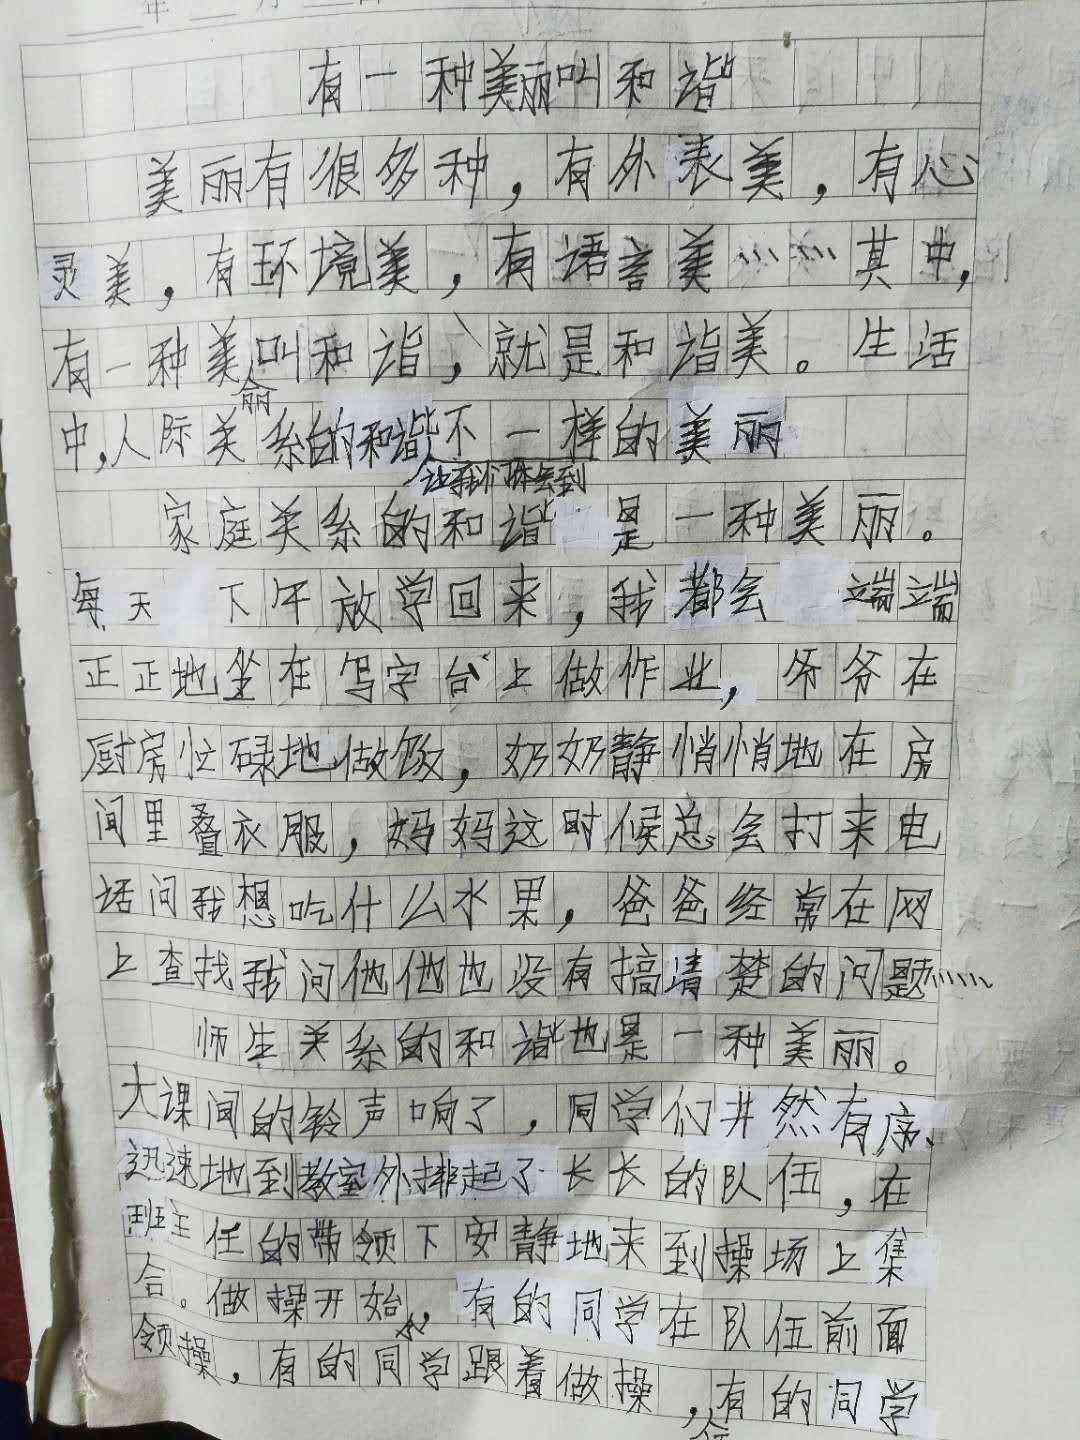 年 月
有一种美丽叫和谐
美丽有很多种，有外表美，有心
灵美，有环境美，有语言美……其中，
有一种美丽叫和谐，就是和谐美。生活
中，人际关系的和谐让我们体会到不一样的美丽
家庭关系的和谐是一种美丽。
每天下午放学回来，我都会端端
正正地坐在写字台上做作业，爷爷在
厨房忙碌地做饭，奶奶静悄悄地在房
间里叠衣服，妈妈这时候总会打来电
话问我想吃什么水果，爸爸经常在网
上查找我问他他也没有搞清楚的问题……
师生关系的和谐也是一种美丽。
大课间的铃声响了，同学们井然有序、
迅速地到教室外排起了长长的队伍，在
班主任的带领下安静地来到操场上集
合。做操开始，有的同学在队伍前面
领操，有的同学跟着做操，有的同学